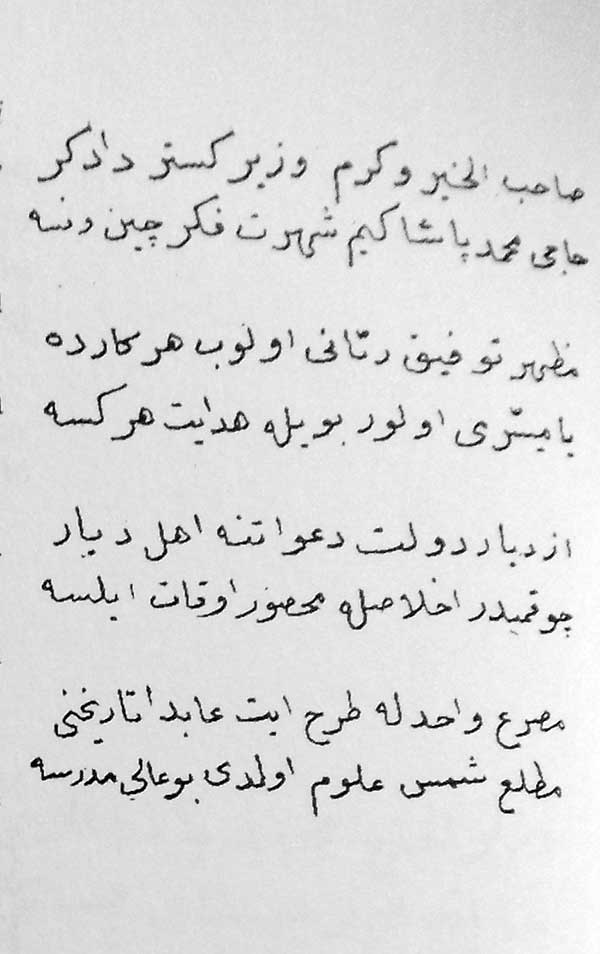 صاحب الخير و كرم وزير كستر دادكر
حاجى محمد پاشا كيم شهرت فكر چين و نسه
مظهر توفيق ربّانى اولوب هر كارده
يا ميسّرى اولور بويله هدايت هر كسه
ازدياد دولت دعواتنه اهل ديار
چوقميدر اخلاصله محضور اوقات ايلسه
مصرع واحدله طرح ايت عابدا تاريخنى
مطلع شمس علوم اولدى بو عالي مدرسه